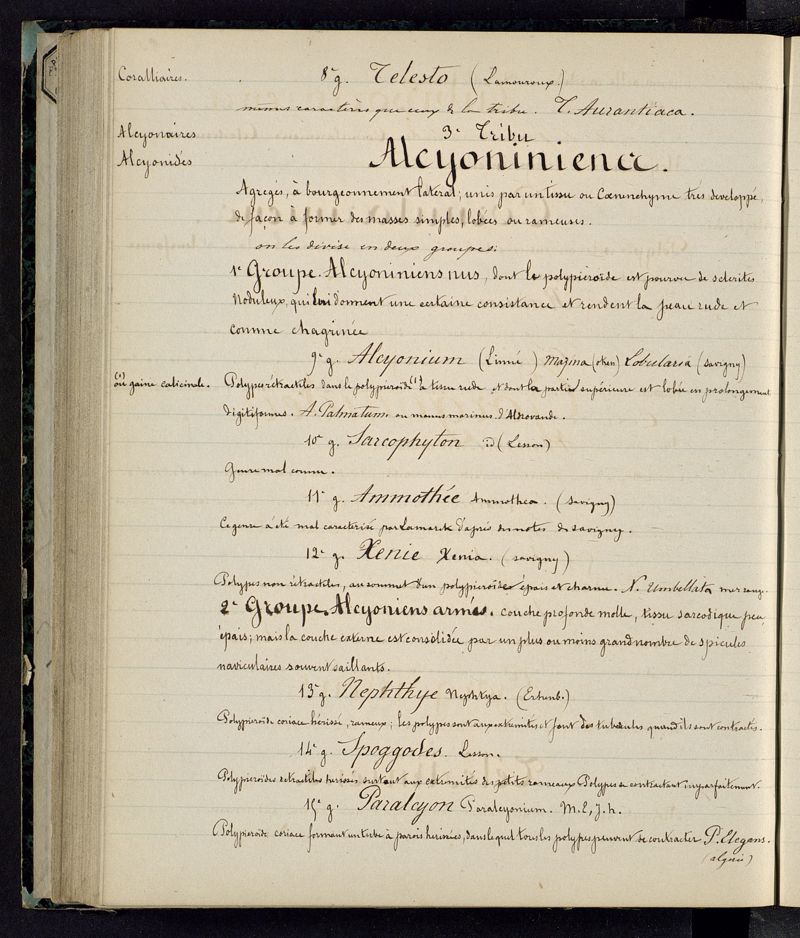 Coralliaires.
8e g. Telesto (Lamouroux.)
mêmes caractères que ceux de la tribu. T. Aurantiaca.
Alcyonaires
Alcyonidés
3e Tribu
Alcyoninienæ.
Agrégés, à bourgeonnement latéral; unis par un tissu ou Cœnenchyme très developpé,
de façon à former des masses simples, lobées ou rameuses.
on les divise en deux groupes:
1e Groupe. Alcyoniniens nus, dont le polypieroïde est pourvu de sclerites
Noduleux, qui lui donnent une certaine consistance et rendent la peau rude et
comme chagrinée
9e g. Alcyonium (Linné) Mazina (oken) Lobularia (savigny)
(1) ou gaine calicinale.
Polypes rétractiles dans le polypieroïde (1) à tissu rude et dont la partie supérieure est lobée en prolongement
digitiformes. A. Palmatum. ou manus marinus d'Aldrovande.
10e g. Sarcophyton id (Lesson)
Genre mal connu.
11e g. Ammothée Ammothea. (savigny)
Ce genre a été mal caracterisé par Lamarck d'après des notes de savigny.
12e g. Xenie Xenia. (savigny)
Polypes non rétractiles, au sommet d'un polypieroïde épais et charnu. N. Umbellata mer roug.
2e Groupe. Alcyoniens armés. couche profonde molle, tissu sarcodique peu
épais; mais la couche externe est consolidée par un plus ou moins grand nombre de spicules
naviculaires souvent saillants.
13e g. Nephthye Nephtya. (Erhenb.)
Polypieroïde coriace hérissé, rameux; les polypes sont aux extremités et font des tubercules quand ils sont contractés.
14e g. Spoggodes. Lesson.
Polypieroïdes retractiles herissés surtout aux extrémités des petits rameaux Polypes se contractant imparfaitement.
15e g. Paralcyon Paralcyonium. M. E, J. h.
Polypieroïde coriace formant un tube à parois herissées, dans lequel tous les polypes peuvent se contracter P. Elegans.
(algérie)